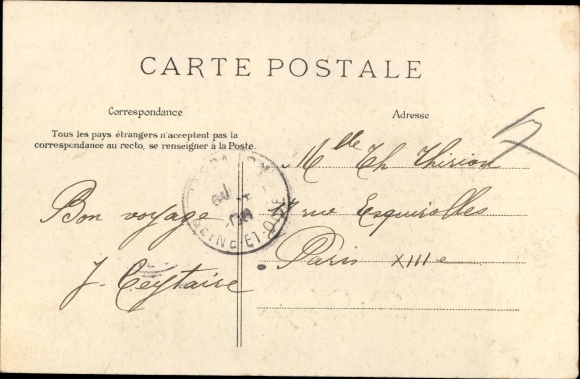 CARTE POSTALE
Correspondance
Tous les pays étrangers n'acceptent pas la
correspondance au recto, se renseigner à la Poste.
Adresse
Mlle Th Thirion
rue Esquirolles
Paris XIIIe
Bon voyage
J. Ceytaire
SEINE-ET-OISE